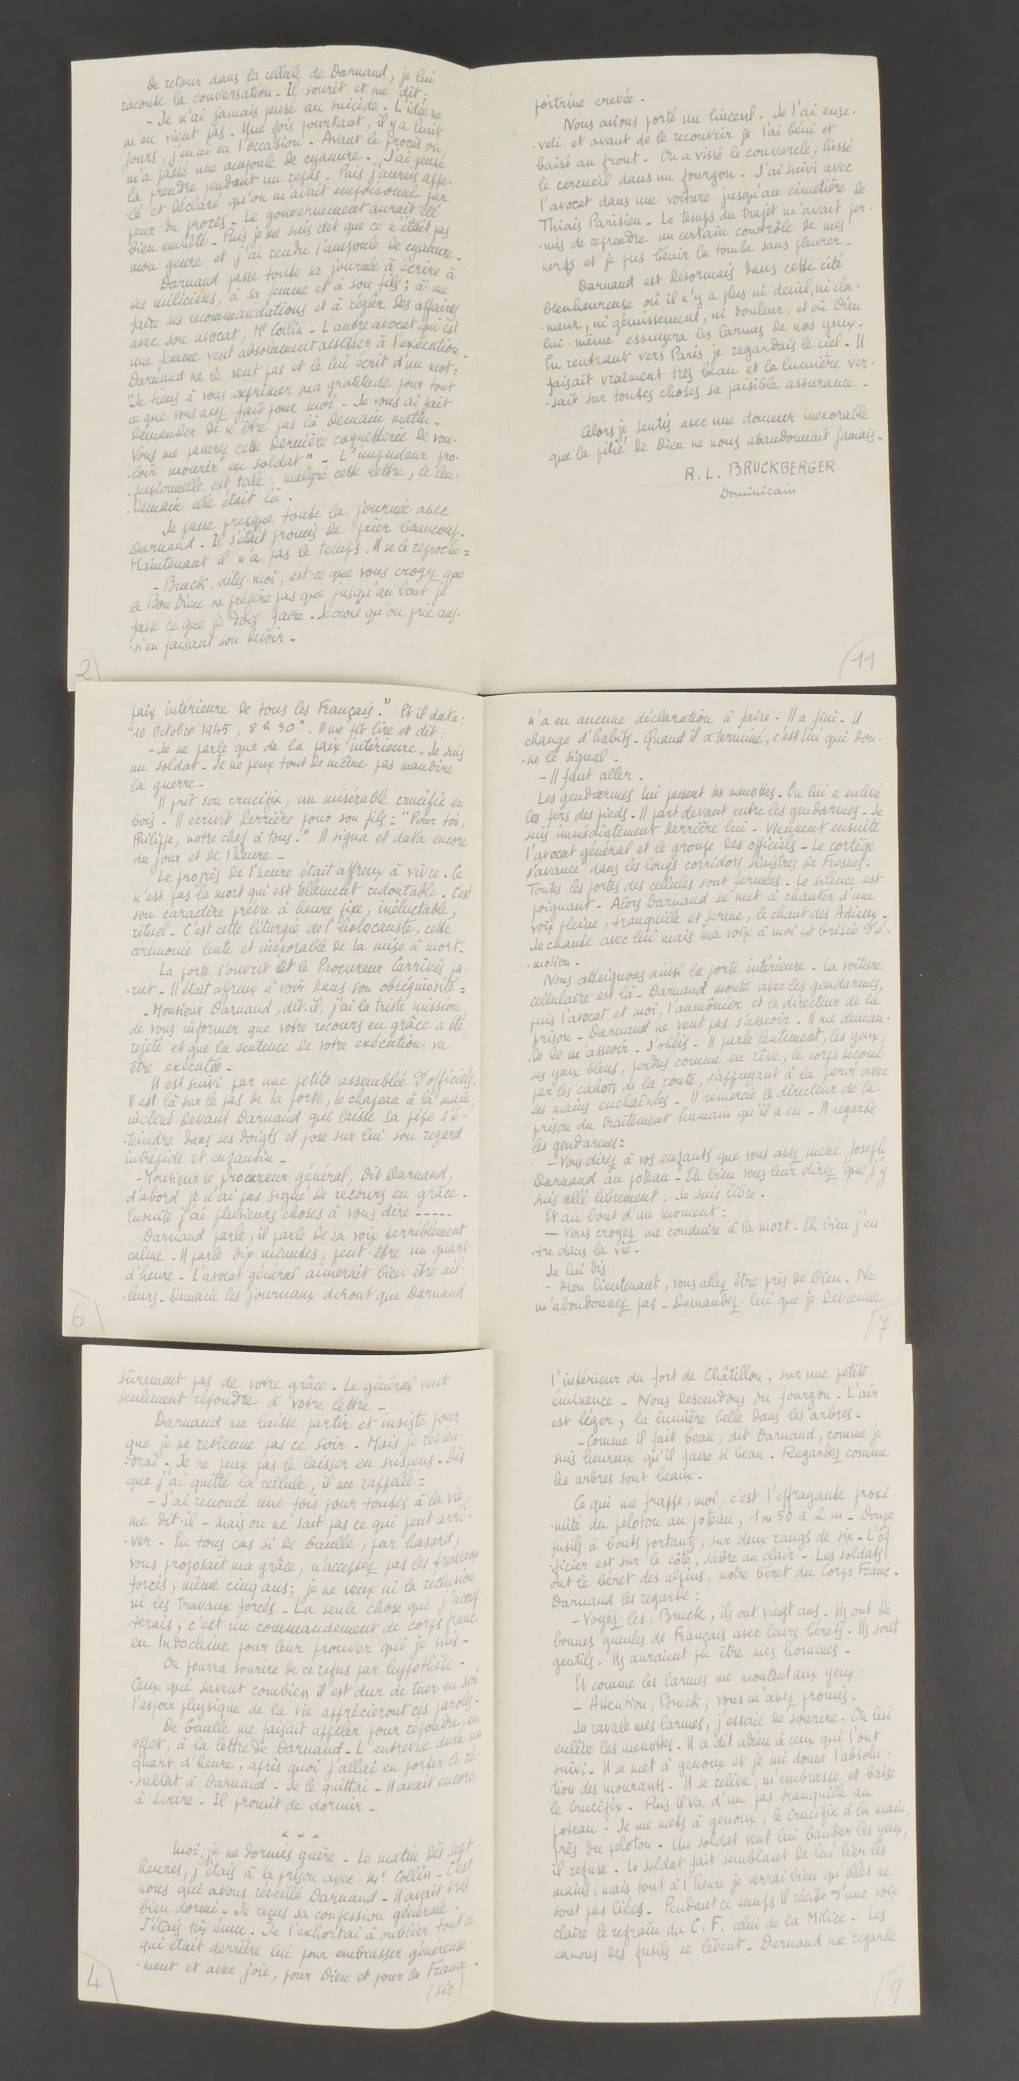 De retour dans la cellule de Darnaud, je lui
raconte la conversation. Il sourit et me dit :
- Je n'ai jamais pensé au suicide. L'idée ne
m'en vient pas. Une fois pourtant, il y a huit
jours, j'en ai eu l'occasion. Avant le procès on
m'a passé une ampoule de cyanure. J'ai pensé
la prendre pendant un repas. Puis j'aurais appe-
-lé et déclaré qu'on m'avait empoisonné par
peur du procès. Le gouvernement aurait été
bien embêté. Puis je me suis dit que ce n'était pas
mon genre et j'ai rendu l'ampoule de cyanure.
Darnaud passe toute sa journée à écrire à
ses miliciens, à sa femme et à son fils ; à me
faire ses recommandations et à régler des affaires
avec son avocat, Me Collin. L'autre avocat qui est
une femme veut absolument assister à l'exécution.
Darnaud ne le veut pas et le lui écrit d'un mot :
"Je tiens à vous exprimer ma gratitude pour tout
ce que vous avez fait pour moi. Je vous ai fait
demander de n'être pas là demain matin.
Vous me passerez cette dernière coquetterie de vou-
-loir mourir en soldat" - L'impudeur pro-
-fessionnelle est telle : malgré cette lettre, le len-
-demain elle était là.
Je passe presque toute la journée avec
Darnaud. Il s'était promis de prier beaucoup.
Maintenant il n'a pas le temps. Il se le reproche =
- Bruck, dites-moi, est-ce que vous croyez que
le Bon Dieu ne préfère pas que jusqu'au bout je
fasse ce que je dois faire. Je crois qu'on prie aus-
-si en faisant son devoir -
2
poitrine crevée -
Nous avions porté un linceul. Je l'ai ense-
-veli et avant de le recouvrir je l'ai béni et
baisé au front. On a vissé le couvercle, hissé
le cercueil dans un fourgon. J'ai suivi avec
l'avocat dans une voiture jusqu'au cimetière de
Thiais Parisien. Le temps du trajet m'avait per-
-mis de reprendre un certain contrôle de mes
nerfs et je pus bénir la tombe sans pleurer -
Darnaud est désormais dans cette cité
bienheureuse où il n'y a plus ni deuil, ni cla-
-meur, ni gémissement, ni douleur, et où Dieu
lui-même essuyera les larmes de nos yeux.
En rentrant vers Paris je regardais le ciel. Il
faisait vraiment très beau et la lumière ver-
-sait sur toutes choses sa paisible assurance -
Alors je sentis avec une douceur inexorable
que la pitié de Dieu ne nous abandonnait jamais -
R. L. BRUCKBERGER
Dominicain
11
paix intérieure de tous les Français." Et il data :
"10 Octobre 1945, 8 h 30" Il me fit lire et dit :
- Je ne parle que de la paix intérieure. Je suis
un soldat. Je ne peux tout de même pas maudire
la guerre -
Il prit son crucifix, un misérable crucifix en
bois. Il écrivit derrière pour son fils : "Pour toi,
Philippe, notre chef à tous." Il signa et data encore
du jour et de l'heure -
Le progrès de l'heure était affreux à vivre. Ce
n'est pas la mort qui est tellement redoutable. C'est
son caractère prévu à heure fixe, inéluctable,
rituel. C'est cette liturgie de l'holocauste, cette
cérémonie lente et inexorable de la mise à mort -
La porte s'ouvrit et le Procureur Carrivès pa-
-rut. Il était affreux à voir dans son obséquiosité =
- Monsieur Darnaud, dit-il, j'ai la triste mission
de vous informer que votre recours en grâce a été
rejeté et que la sentence de votre exécution va
être exécutée -
Il est suivi par une petite assemblée d'officiels.
Il est là sur le pas de la porte, le chapeau à la main,
incliné devant Darnaud qui laisse sa pipe s'é-
-teindre dans ses doigts et pose sur lui son regard
intrépide et enfantin -
- Monsieur le procureur général, dit Darnaud,
d'abord je n'ai pas signé de recours en grâce.
Ensuite j'ai plusieurs choses à vous dire -----
Darnaud parle, il parle de sa voix terriblement
calme. Il parle dix minutes, peut-être un quart
d'heure. L'avocat général aimerait bien être ail-
-leurs. Demain les journaux diront que Darnaud
6
n'a eu aucune déclaration à faire - Il a fini. Il
change d'habits. Quand il a terminé, c'est lui qui don-
-ne le signal -
- Il faut aller.
Les gendarmes lui passent les menottes. On lui a enlevé
les fers des pieds. Il part devant entre les gendarmes. Je
suis immédiatement derrière lui. Viennent ensuite
l'avocat général et le groupe des officiels. Le cortège
s'avance dans les longs corridors sinistres de Fresnes.
Toutes les portes des cellules sont fermées. Le silence est
poignant. Alors Darnaud se met à chanter d'une
voix pleine, tranquille et ferme, le chant des Adieux.
Je chante avec lui mais ma voix à moi est brisée d'é-
-motion -
Nous atteignons ainsi la porte intérieure. La voiture
cellulaire est là. Darnaud monte avec les gendarmes,
puis l'avocat et moi, l'aumônier et le directeur de la
prison. Darnaud ne veut pas s'asseoir. Il me deman-
-de de m'asseoir. J'obéis. Il parle lentement, les yeux,
ses yeux bleus, perdus comme en rêve, le corps secoué
par les cahots de la route, s'appuyant à la paroi avec
ses mains enchaînées. Il remercie le directeur de la
prison du traitement humain qu'il a eu. Il regarde
les gendarmes :
- Vous direz à vos enfants que vous avez mené Joseph
Darnaud au poteau. Eh bien vous leur direz que j'y
suis allé librement. Je suis libre -
Et au bout d'un moment :
- Vous croyez me conduire à la mort. Eh bien j'en-
-tre dans la vie -
Je lui dis :
- Mon lieutenant, vous allez être près de Dieu. Ne
m'abandonnez pas - Demandez-lui que je devienne
7
sûrement pas de votre grâce. Le général veut
seulement répondre à votre lettre -
Darnaud me laisse partir et insiste pour
que je ne revienne pas ce soir - Mais je revien-
-drai. Je ne peux pas le laisser en suspens. Dès
que j'ai quitté la cellule, il me rappelle =
- J'ai renoncé une fois pour toutes à la vie,
me dit-il - mais on ne sait pas ce qui peut arri-
-ver - En tous cas si De Gaulle, par hasard,
vous proposait ma grâce, n'acceptez pas les travaux
forcés, même cinq ans ; je ne veux ni la réclusion
ni les travaux forcés - La seule chose que j'accep-
-terais, c'est un commandement de corps franc
en Indochine pour leur prouver qui je suis -
On pourra sourire de ce refus par hypothèse.
Ceux qui savent combien il est dur de tuer en soi
l'espoir physique de la vie apprécieront ces paroles.
De Gaulle me faisait appeler pour répondre, en
effet, à la lettre de Darnaud. L'entrevue dura un
quart d'heure, après quoi j'allai en porter le ré-
-sultat à Darnaud. Je le quittai. Il avait encore
à écrire - Il promit de dormir -
* * *
Moi, je ne dormis guère. Le matin dès sept
heures, j'étais à la prison avec Me Collin - C'est
nous qui avons réveillé Darnaud. Il avait très
bien dormi. Je reçus sa confession générale.
J'étais très ému. Je l'exhortai à oublier tout ce
qui était derrière lui pour embrasser généreuse-
-ment et avec joie, pour Dieu et pour la France.
(sic)
4
l'intérieur du fort de Châtillon, sur une petite
éminence - Nous descendons du fourgon. L'air
est léger, la lumière belle dans les arbres -
- Comme il fait beau, dit Darnaud, comme je
suis heureux qu'il fasse si beau. Regardez comme
les arbres sont beaux.
Ce qui me frappe, moi, c'est l'effrayante proxi-
-mité du peloton au poteau, 1 m 50 à 2 m - Douze
fusils à bouts portants, sur deux rangs de six - L'of-
-ficier est sur le côté, sabre au clair - Les soldats
ont le béret des alpins, notre béret du Corps Franc -
Darnaud les regarde :
- Voyez les, Bruck, ils ont vingt ans. Ils ont de
bonnes gueules de Français avec leurs bérets. Ils sont
gentils. Ils auraient pu être mes hommes -
Et comme les larmes me montent aux yeux :
- Attention, Bruck, vous m'avez promis.
Je ravale mes larmes, j'essaie de sourire. On lui
enlève les menottes. Il a dit adieu à ceux qui l'ont
suivi. Il se met à genoux et je lui donne l'absolu-
-tion des mourants. Il se relève, m'embrasse et baise
le Crucifix. Puis il va d'un pas tranquille au
poteau. Je me mets à genoux, le Crucifix à la main,
près du peloton. Un soldat veut lui bander les yeux,
il refuse. Le soldat fait semblant de lui lier les
mains, mais tout à l'heure je verrai bien qu'elles ne
sont pas liées. Pendant ce temps il récite d'une voix
claire le refrain du C. F. celui de la Milice. Les
canons des fusils se lèvent. Darnaud me regarde
9